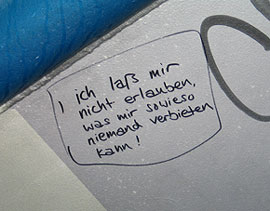 ich laß mir
nicht erlauben,
was mir sowieso
niemand verbieten
kann!